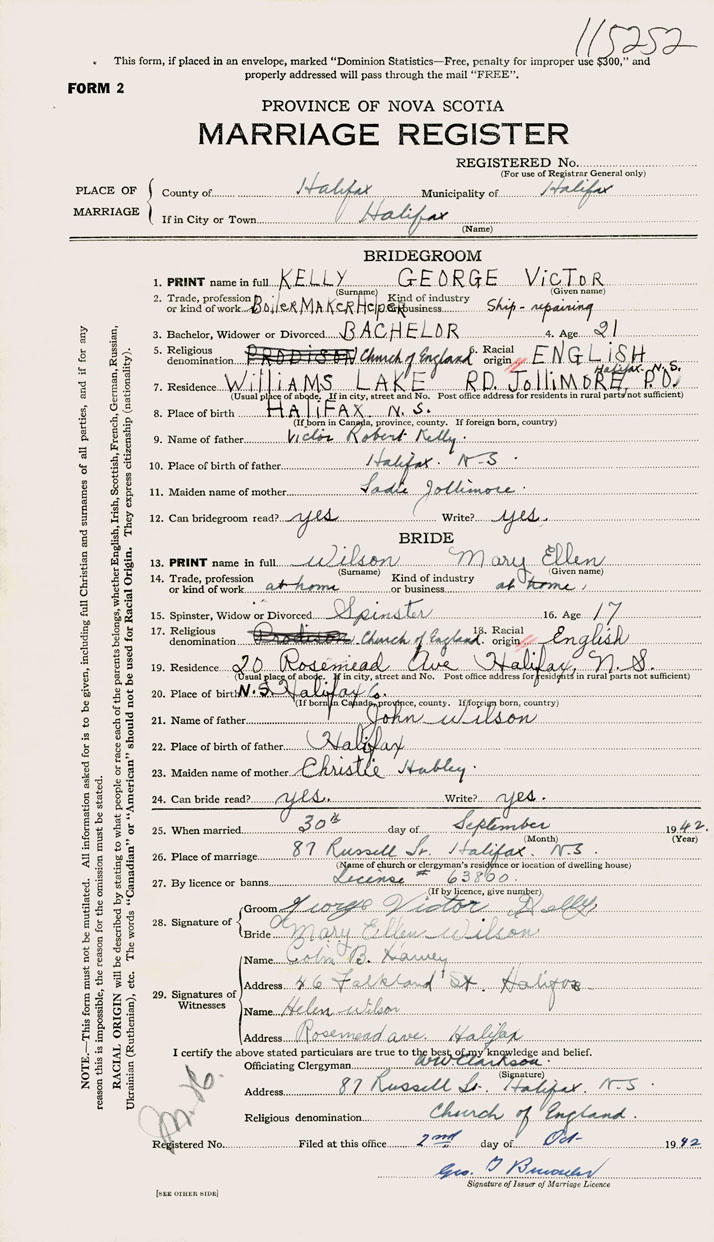 115252
This form, if placed in an envelope, marked "Dominion Statistics—Free, penalty for improper use $300," and
properly addressed will pass through the mail "FREE".
FORM 2
PROVINCE OF NOVA SCOTIA
MARRIAGE REGISTER
REGISTERED No.
(For use of Registrar General only)
PLACE OF MARRIAGE
County of Halifax Municipality of Halifax
If in City or Town Halifax
(Name)
BRIDEGROOM
1. PRINT name in full KELLY GEORGE VICTOR
(Surname) (Given name)
2. Trade, profession or kind of work BoilerMAKER HelpeR Kind of industry or business Ship-repairing
3. Bachelor, Widower or Divorced BACHELOR 4. Age 21
5. Religious denomination Church of England 6. Racial origin ENGLISH
Halifax. N.S.
7. Residence WilliAMS LAKE RD. JolliMORE, P.O.
(Usual place of abode. If in city, street and No. Post office address for residents in rural parts not sufficient)
8. Place of birth HALIFAX N.S.
(If born in Canada, province, county. If foreign born, country)
9. Name of father Victor Robert Kelly.
10. Place of birth of father Halifax. N-S
11. Maiden name of mother Sadie Jollimore.
12. Can bridegroom read? yes Write? yes.
BRIDE
13. PRINT name in full Wilson Mary Ellen
(Surname) (Given name)
14. Trade, profession or kind of work at home Kind of industry or business at home
15. Spinster, Widow or Divorced Spinster 16. Age 17
17. Religious denomination Church of England. 18. Racial origin English
19. Residence 20 Rosemead Ave Halifax, N.S.
(Usual place of abode. If in city, street and No. Post office address for residents in rural parts not sufficient)
20. Place of birth N.S. Halifax Co.
(If born in Canada, province, county. If foreign born, country)
21. Name of father John Wilson
22. Place of birth of father Halifax
23. Maiden name of mother Christie Hubley.
24. Can bride read? yes. Write? yes.
25. When married 30th day of September 1942.
(Month) (Year)
26. Place of marriage 87 Russell St. Halifax. N-S
(Name of church or clergyman's residence or location of dwelling house)
27. By licence or banns License # 63860.
(If by licence, give number)
28. Signature of
Groom George Victor Kelly
Bride Mary Ellen Wilson
29. Signatures of Witnesses
Name Colin B. Harvey
Address 46 Falkland St. Halifax
Name Helen Wilson
Address Rosemead ave. Halifax
I certify the above stated particulars are true to the best of my knowledge and belief.
Officiating Clergyman Clarkson.
(Signature)
Address 87 Russell St. Halifax. N-S
Religious denomination Church of England.
Registered No. Filed at this office 2nd day of Oct- 1942
Geo.
Signature of Issuer of Marriage Licence
[SEE OTHER SIDE]
NOTE.—This form must not be mutilated. All information asked for is to be given, including full Christian and surnames of all parties, and if for any
reason this is impossible, the reason for the omission must be stated.
RACIAL ORIGIN will be described by stating to what people or race each of the parents belongs, whether English, Irish, Scottish, French, German, Russian,
Ukrainian (Ruthenian), etc. The words "Canadian" or "American" should not be used for Racial Origin. They express citizenship (nationality).